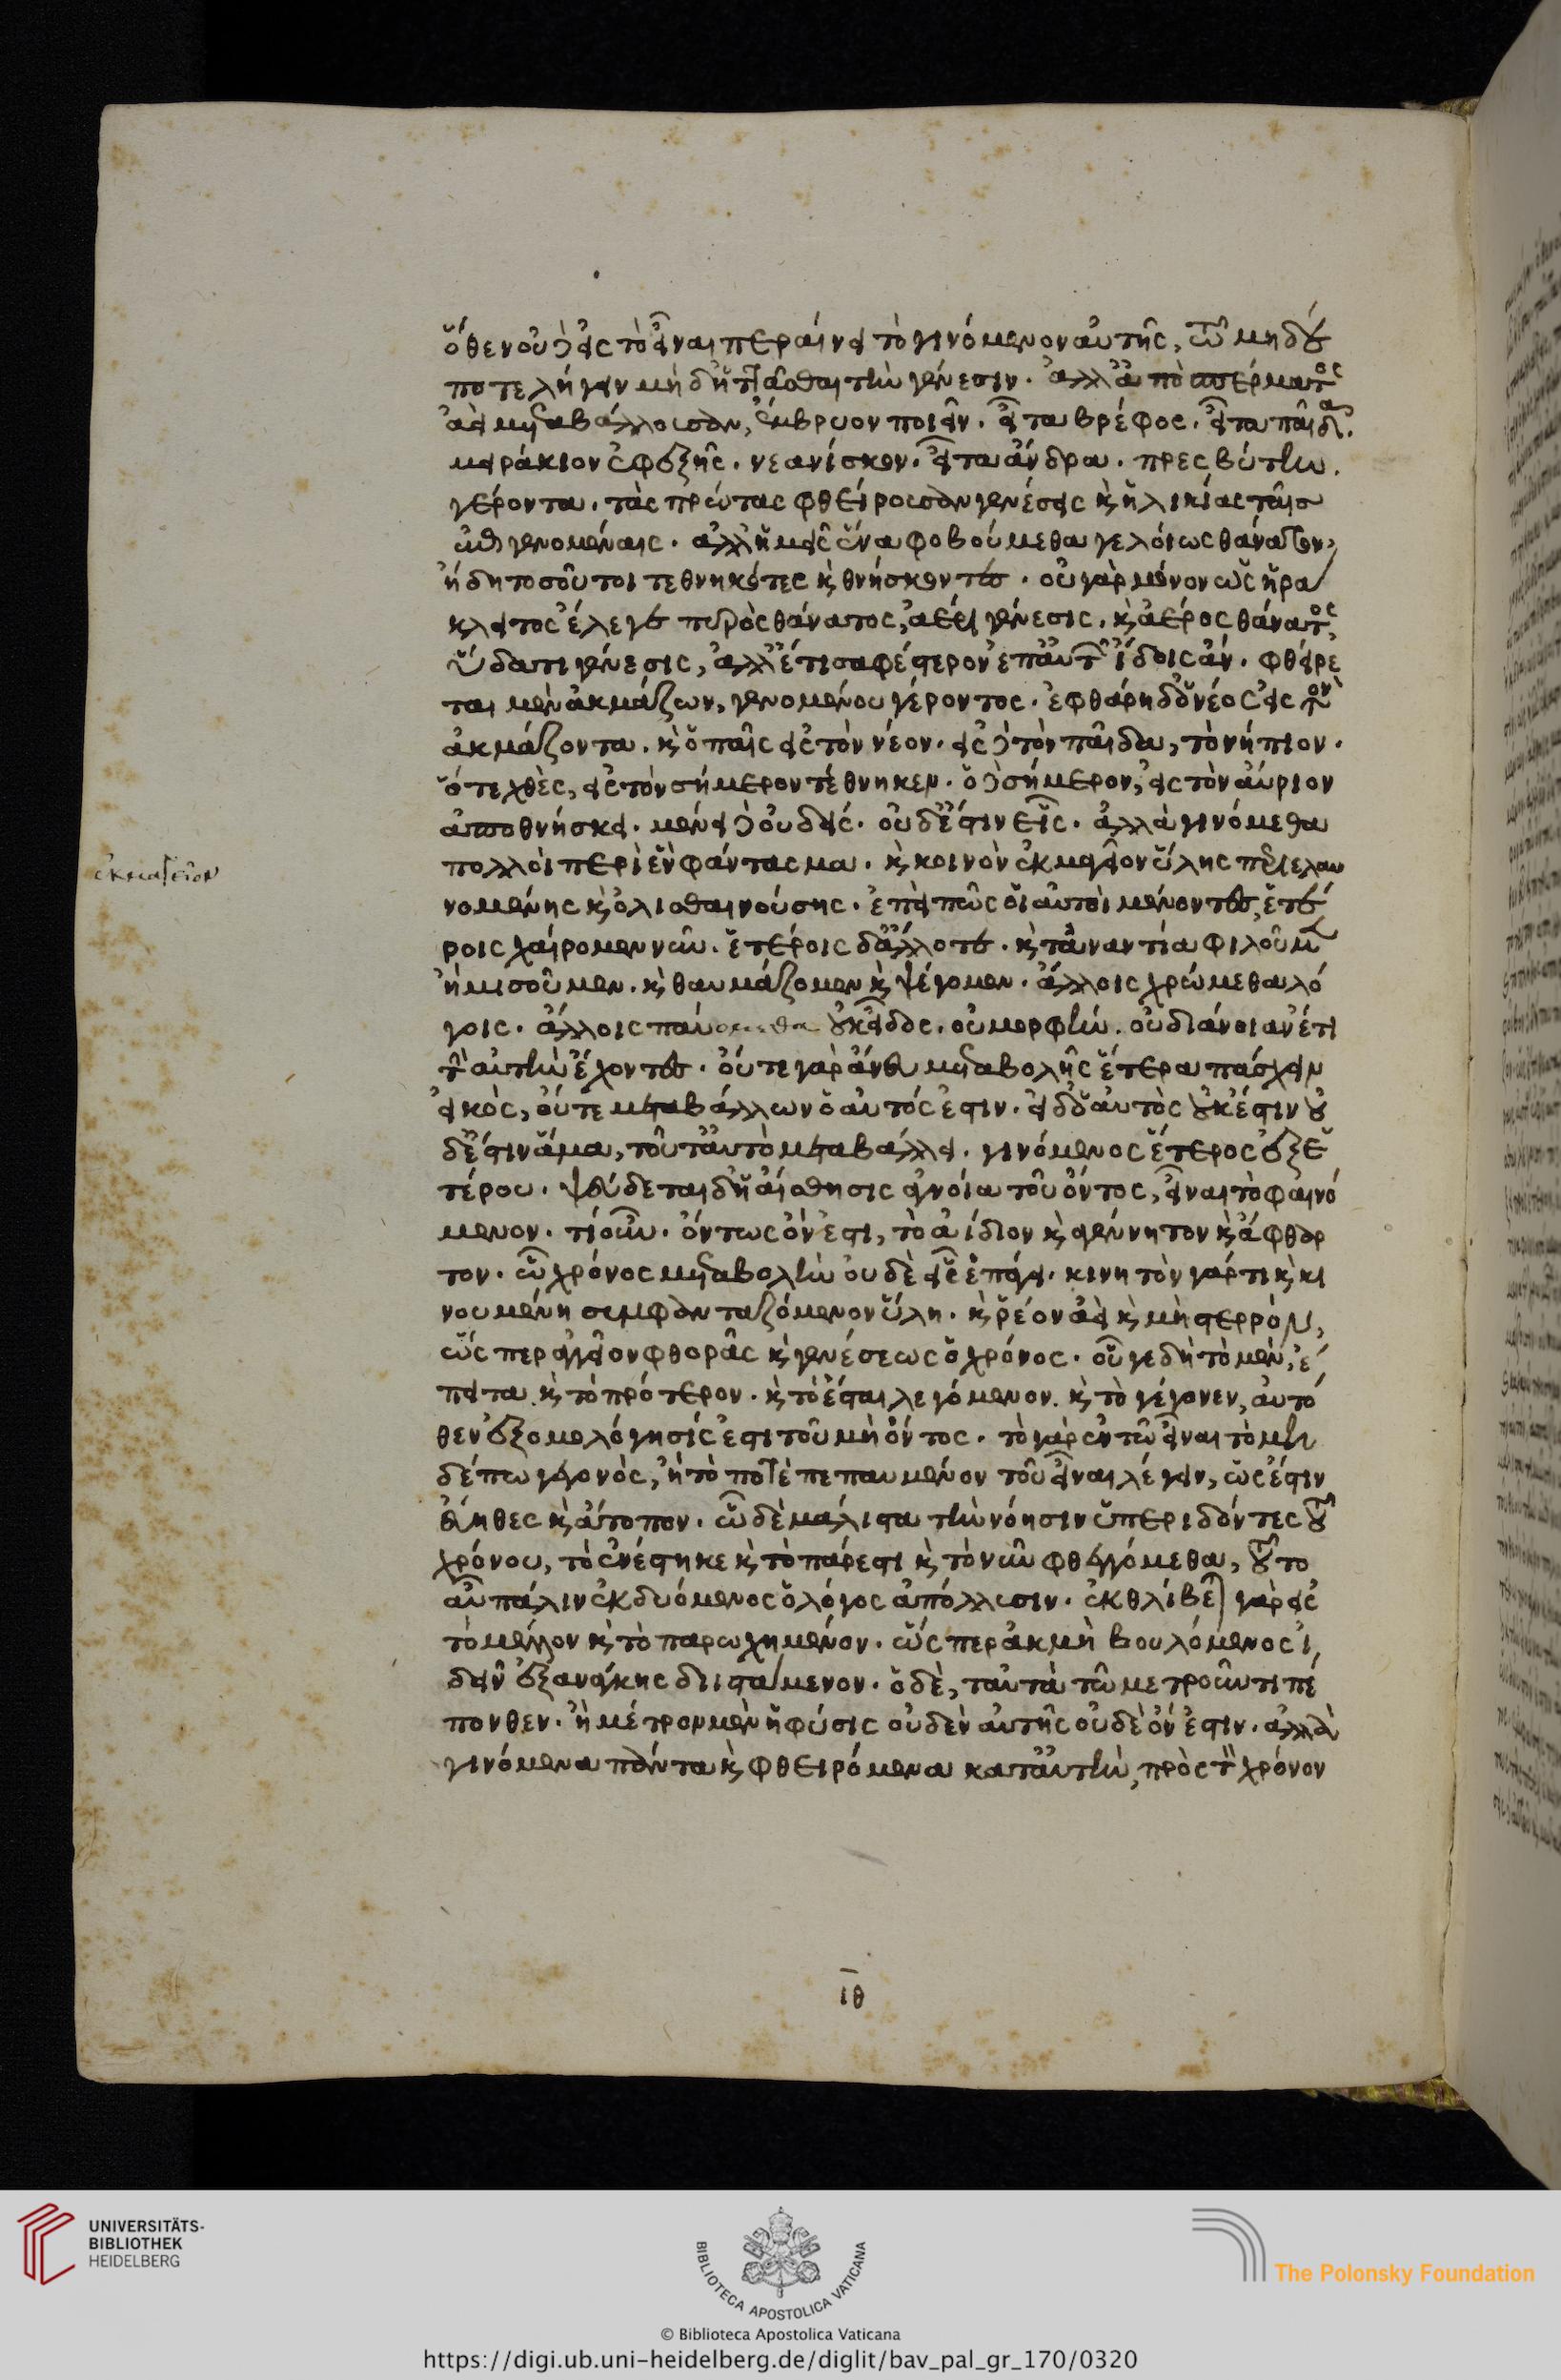 ὅθεν οὐδ' εἰς τὸ εἶναι περαίνει τὸ γινόμενον αὐτῆς, τῷ μηδέ
ποτε λήγειν μηδ' ἵστασθαι τὴν γένεσιν. ἀλλ' ἀπὸ σπέρματος
ἀεὶ μεταβάλλουσαν, ἔμβρυον ποιεῖν. εἶτα βρέφος. εἶτα παῖδα.
μειράκιον ἐφεξῆς. νεανίσκον. εἶτα ἄνδρα. πρεσβύτην.
γέροντα. τὰς πρώτας φθείρουσαν γενέσεις καὶ ἡλικίας ταῖς
ἐπιγενομέναις. ἀλλ' ἡμεῖς ἕνα φοβούμεθα γελοίως θάνατον,
ἤδη τοσοῦτοι τεθνηκότες καὶ θνήσκοντες. οὐ γὰρ μόνον ὡς ἡρά
κλειτος ἔλεγε πυρὸς θάνατος, ἀέρι γένεσις. καὶ ἀέρος θάνατος,
ὕδατι γένεσις, ἀλλ' ἔτι σαφέστερον ἐπ' αὐτῶν ἴδοις ἄν. φθείρε
ται μὲν ἀκμάζων, γενομένου γέροντος. ἐφθάρη δ' ὁ νέος εἰς τὸν
ἀκμάζοντα. καὶ ὁ παῖς εἰς τὸν νέον. εἰς δὲ τὸν παῖδα, τὸ νήπιον.
ὅ τε χθὲς, εἰς τὸν σήμερον τέθνηκεν. ὁ δὲ σήμερον, εἰς τὸν αὔριον
ἀποθνήσκει. μένει δὲ οὐδείς. οὐδ' ἔστιν εἷς. ἀλλὰ γινόμεθα
πολλοὶ περὶ ἓν φάντασμα. καὶ κοινὸν ἐκμαγεῖον ὕλης περιελαυ
νομένης καὶ ὀλισθαινούσης. ἐπεὶ πῶς οἱ αὐτοὶ μένοντες, ἑτέ
ροις χαίρομεν νῦν. ἑτέροις δ' ἄλλοτε. καὶ τἀναντία φιλοῦμεν
ἢ μισοῦμεν. καὶ θαυμάζομεν καὶ ψέγομεν. ἄλλοις χρώμεθα λό
γοις. ἄλλοις παύομεθα οὐκ εἶδος. οὐ μορφήν. οὐ διάνοιαν ἔτι
τὴν αὐτὴν ἔχοντες. οὔτε γὰρ ἄνευ μεταβολῆς ἕτερα πάσχειν
εἰκὸς, οὔτε μεταβάλλων ὁ αὐτός ἐστιν. εἰ δ' ὁ αὐτὸς οὐκ ἔστιν οὐ
δ' ἔστιν ἅμα, τοῦτ' αὐτὸ μεταβάλλει. γινόμενος ἕτερος ἐξ ἑ
τέρου. ψεύδεται δ' ἡ αἴσθησις ἀγνοία τοῦ ὄντος, εἶναι τὸ φαινό
μενον. τί οὖν. ὄντως ὄν ἐστι, τὸ ἀίδιον καὶ ἀγέννητον καὶ ἄφθαρ
τον. ᾧ χρόνος μεταβολὴν οὐδὲ εἷς ἐπάγει. κινητὸν γάρ τι καὶ κι
νουμένῃ συμφανταζόμενον ὕλῃ. καὶ ῥέον ἀεὶ καὶ μὴ στερρὸν,
ὥσπερ ἀγγεῖον φθορᾶς καὶ γενέσεως ὁ χρόνος. οὗ γε δὴ τὸ μὲν, ἔ
πειτα καὶ τὸ πρότερον. καὶ τὸ ἔσται λεγόμενον. καὶ τὸ γέγονεν, αὐτό
θεν ἐξομολόγησίς ἐστι τοῦ μὴ ὄντος. τὸ γὰρ ἐν τῷ εἶναι τὸ μη
δέπω γεγονὸς, ἢ τὸ ποτὲ πεπαυμένον τοῦ εἶναι λέγειν, ὡς ἔστιν
εὔηθες καὶ ἄτοπον. ᾧ δὲ μάλιστα τὴν νόησιν ὑπεριδόντες τοῦ
χρόνου, τὸ ἐνέστηκε καὶ τὸ πάρεστι καὶ τὸ νῦν φθεγγόμεθα, τοῦτο
αὖ πάλιν ἐκδυόμενος ὁ λόγος ἀπόλλυσιν. ἐκθλίβεται γὰρ εἰς
τὸ μέλλον καὶ τὸ παρῳχημένον. ὥσπερ ἀκμὴ βουλόμενος ἰ
δεῖν ἐξ ἀνάγκης διιστάμενον. ὁ δὲ, ταὐτὰ τῷ μετροῦντι πέ
πονθεν. ἢ μέτρον μὲν ἡ φύσις οὐδὲν αὐτῆς οὐδὲ ὄν ἐστιν. ἀλλὰ
γινόμενα πάντα καὶ φθειρόμενα κατ' αὐτὴν, πρὸς τὸν χρόνον
ἐκμαγεῖον
ιθ
UNIVERSITÄTS-
BIBLIOTHEK
HEIDELBERG
BIBLIOTECA APOSTOLICA VATICANA
The Polonsky Foundation
© Biblioteca Apostolica Vaticana
https://digi.ub.uni-heidelberg.de/diglit/bav_pal_gr_170/0320